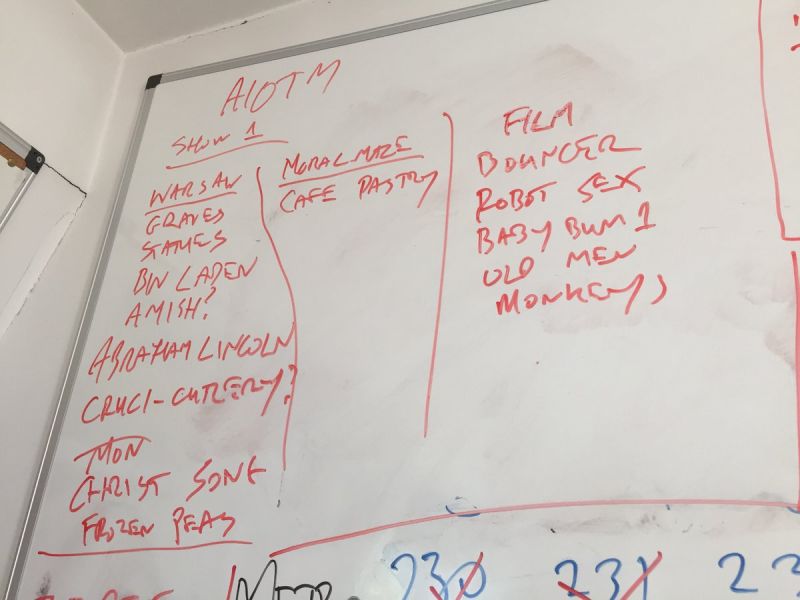 AIOTM
SHOW 1
WARSAW
GRAVES
STATUES
BIN LADEN
AMISH?
ABRAHAM LINCOLN
CRUCI-CUTLERY?
MON
CHRIST SONG
FROZEN PEAS
MORAL MAZE
CAFE PASTRY
FILM
BOUNCER
ROBOT SEX
BABY BUM 1
OLD MEN
MONKEYS
230 231 23